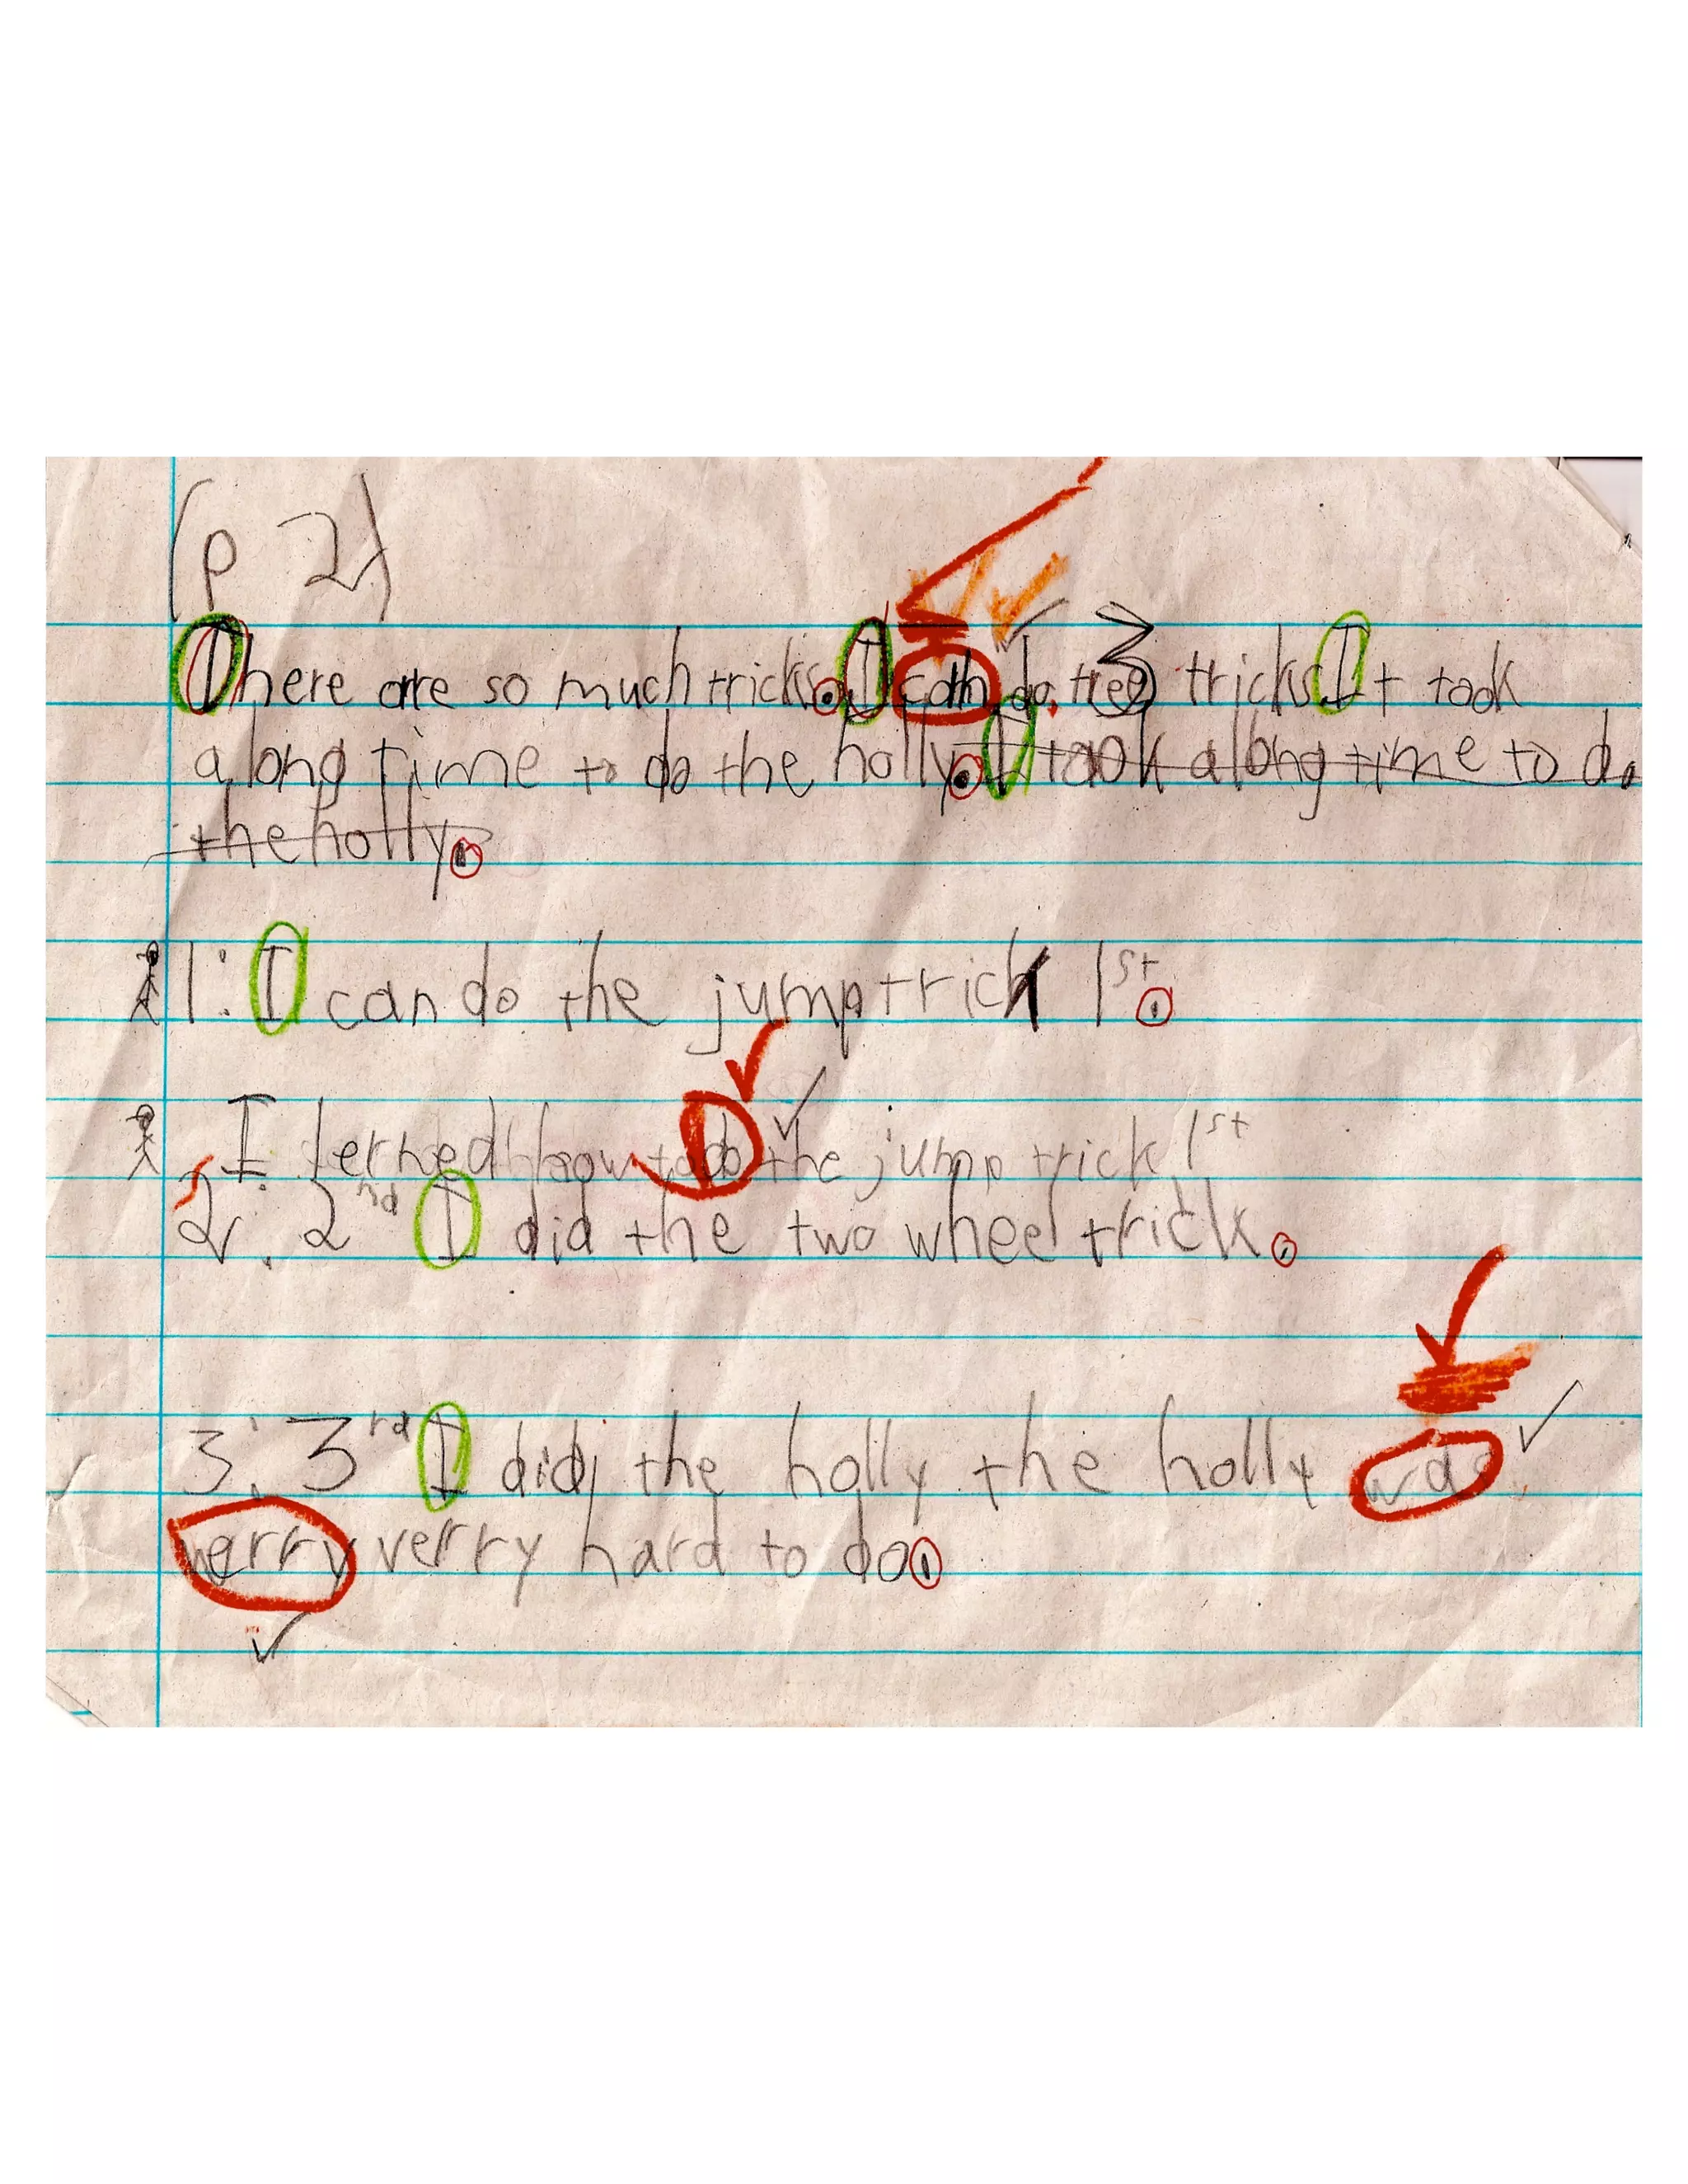 (p 2)
There are so much tricks. I can do tree 3 tricks It took
a long time to do the holly. It took a long time to do
the holly.
1: I can do the jump trick 1st.
I lerned how to do the jump trick 1st
2: 2nd I did the two wheel trick.
3: 3rd I did the holly the holly was
verry verry hard to do.